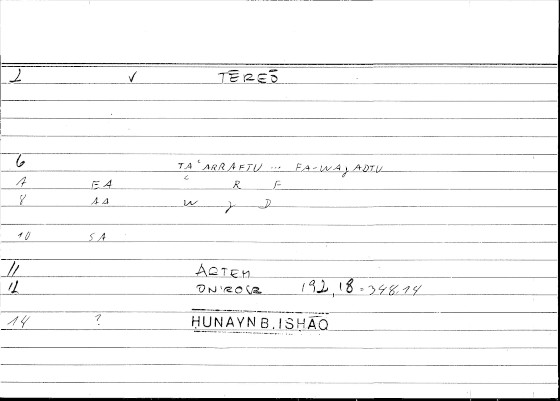 1 V TĒREŌ
6 TAʿARRAFTU ... FA-WAǧADTU
7 EA ʿ R F
8 AA W ǧ D
10 SA
11 ARTEM
12 ONIROCR 192,18 = 348.14
14 ? ḤUNAYN B. ISḤĀQ